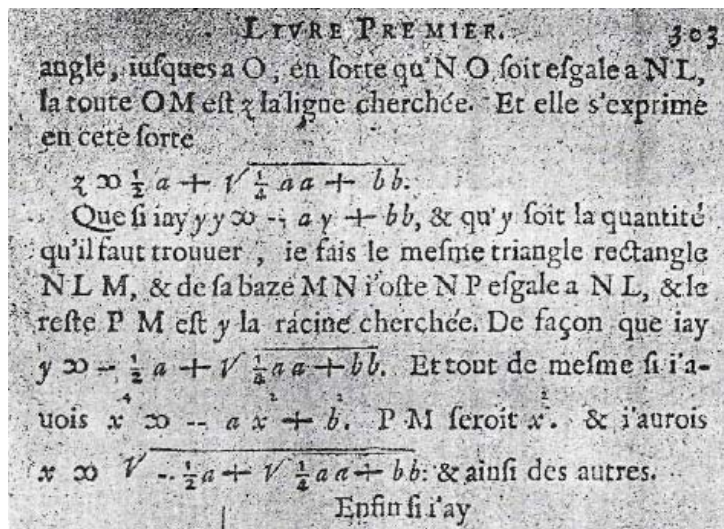 LIVRE PREMIER. 303
angle, iusques a O, en sorte qu'N O soit esgale a N L,
la toute OM est z la ligne cherchée. Et elle s'exprime
en cete sorte
z ꝏ ½ a + √ ¼ aa + bb.
Que si iay yy ꝏ -- a y + bb, & qu'y soit la quantité
qu'il faut trouuer, ie fais le mesme triangle rectangle
N L M, & de sa baze M N i'oste N P esgale a N L, & le
reste P M est y la racine cherchée. De façon que iay
y ꝏ -- ½ a + √ ¼ aa + bb. Et tout de mesme si i'a-
uois x⁴ ꝏ -- a x² + b². P M seroit x². & i'aurois
x ꝏ √ -- ½ a + √ ¼ aa + bb: & ainsi des autres.
Enfin si i'ay